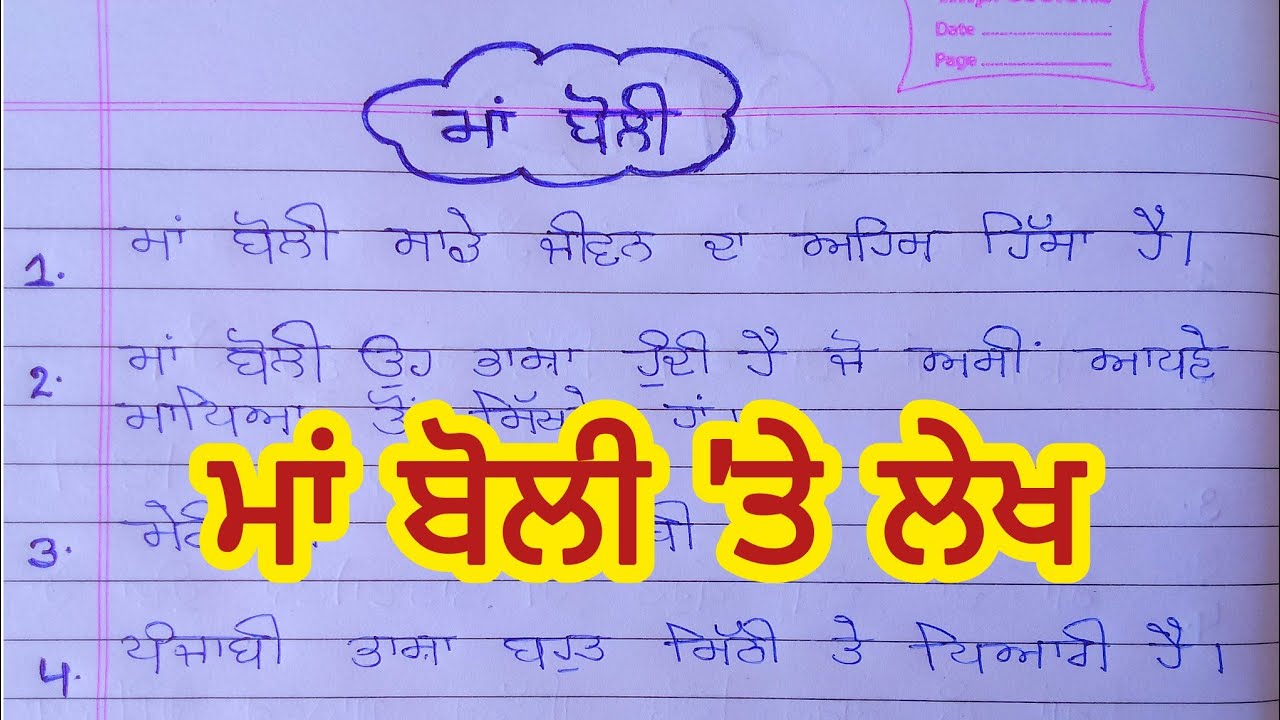 Date
Page
ਮਾਂ ਬੋਲੀ
1. ਮਾਂ ਬੋਲੀ ਸਾਡੇ ਜੀਵਨ ਦਾ ਅਹਿਮ ਹਿੱਸਾ ਹੈ।
2. ਮਾਂ ਬੋਲੀ ਉਹ ਭਾਸ਼ਾ ਹੁੰਦੀ ਹੈ ਜੋ ਅਸੀਂ ਆਪਣੇ
ਮਾਪਿਆ ਤੋਂ ਸਿੱਖਦੇ ਹਾਂ।
ਮਾਂ ਬੋਲੀ 'ਤੇ ਲੇਖ
3.
4. ਪੰਜਾਬੀ ਭਾਸ਼ਾ ਬਹੁਤ ਮਿੱਠੀ ਤੇ ਪਿਆਰੀ ਹੈ।